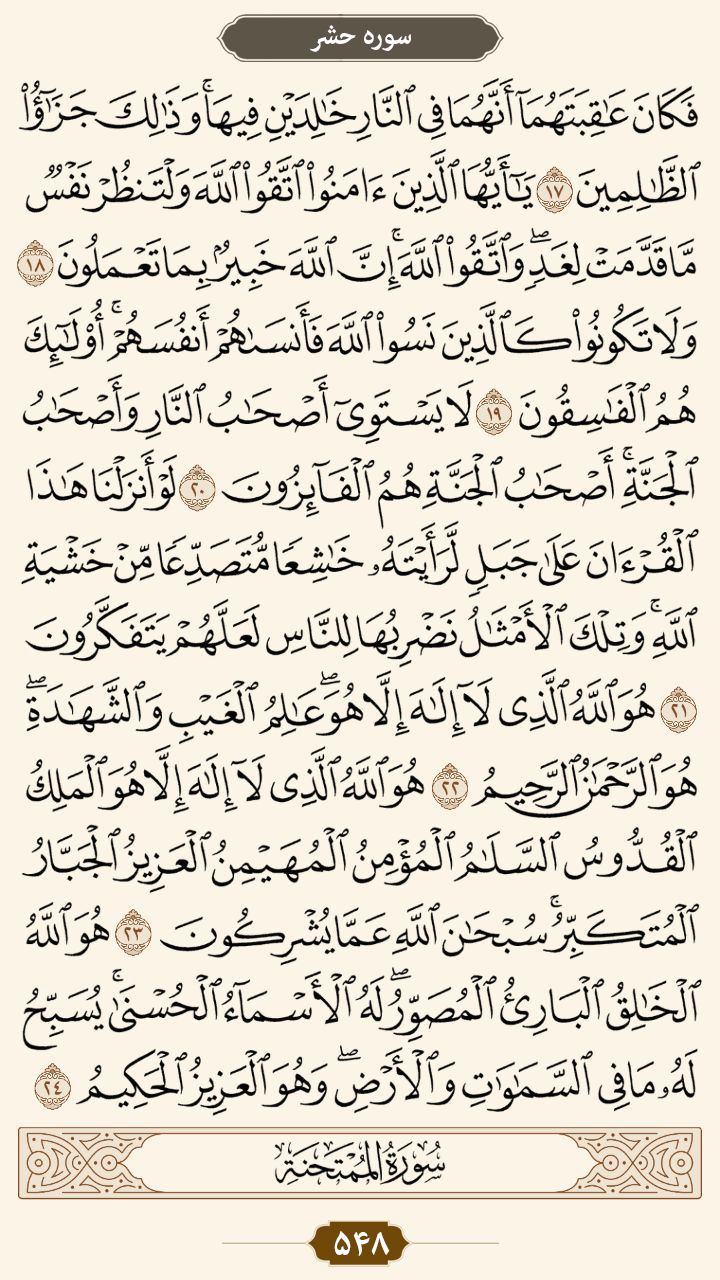 سوره حشر
فَكَانَ عَٰقِبَتَهُمَآ أَنَّهُمَا فِى ٱلنَّارِ خَٰلِدَيْنِ فِيهَاۚ وَذَٰلِكَ جَزَٰٓؤُا۟
ٱلظَّٰلِمِينَ ١٧ يَٰٓأَيُّهَا ٱلَّذِينَ ءَامَنُوا۟ ٱتَّقُوا۟ ٱللَّهَ وَلْتَنظُرْ نَفْسٌ
مَّا قَدَّمَتْ لِغَدٍۖ وَٱتَّقُوا۟ ٱللَّهَۚ إِنَّ ٱللَّهَ خَبِيرٌۢ بِمَا تَعْمَلُونَ ١٨
وَلَا تَكُونُوا۟ كَٱلَّذِينَ نَسُوا۟ ٱللَّهَ فَأَنسَىٰهُمْ أَنفُسَهُمْۚ أُو۟لَٰٓئِكَ
هُمُ ٱلْفَٰسِقُونَ ١٩ لَا يَسْتَوِىٓ أَصْحَٰبُ ٱلنَّارِ وَأَصْحَٰبُ
ٱلْجَنَّةِۚ أَصْحَٰبُ ٱلْجَنَّةِ هُمُ ٱلْفَآئِزُونَ ٢٠ لَوْ أَنزَلْنَا هَٰذَا
ٱلْقُرْءَانَ عَلَىٰ جَبَلٍ لَّرَأَيْتَهُۥ خَٰشِعًا مُّتَصَدِّعًا مِّنْ خَشْيَةِ
ٱللَّهِۚ وَتِلْكَ ٱلْأَمْثَٰلُ نَضْرِبُهَا لِلنَّاسِ لَعَلَّهُمْ يَتَفَكَّرُونَ
٢١ هُوَ ٱللَّهُ ٱلَّذِى لَآ إِلَٰهَ إِلَّا هُوَۖ عَٰلِمُ ٱلْغَيْبِ وَٱلشَّهَٰدَةِۖ
هُوَ ٱلرَّحْمَٰنُ ٱلرَّحِيمُ ٢٢ هُوَ ٱللَّهُ ٱلَّذِى لَآ إِلَٰهَ إِلَّا هُوَ ٱلْمَلِكُ
ٱلْقُدُّوسُ ٱلسَّلَٰمُ ٱلْمُؤْمِنُ ٱلْمُهَيْمِنُ ٱلْعَزِيزُ ٱلْجَبَّارُ
ٱلْمُتَكَبِّرُۚ سُبْحَٰنَ ٱللَّهِ عَمَّا يُشْرِكُونَ ٢٣ هُوَ ٱللَّهُ
ٱلْخَٰلِقُ ٱلْبَارِئُ ٱلْمُصَوِّرُۖ لَهُ ٱلْأَسْمَآءُ ٱلْحُسْنَىٰۚ يُسَبِّحُ
لَهُۥ مَا فِى ٱلسَّمَٰوَٰتِ وَٱلْأَرْضِۖ وَهُوَ ٱلْعَزِيزُ ٱلْحَكِيمُ ٢٤
سُورَةُ المُمْتَحَنَةِ
۵۴۸